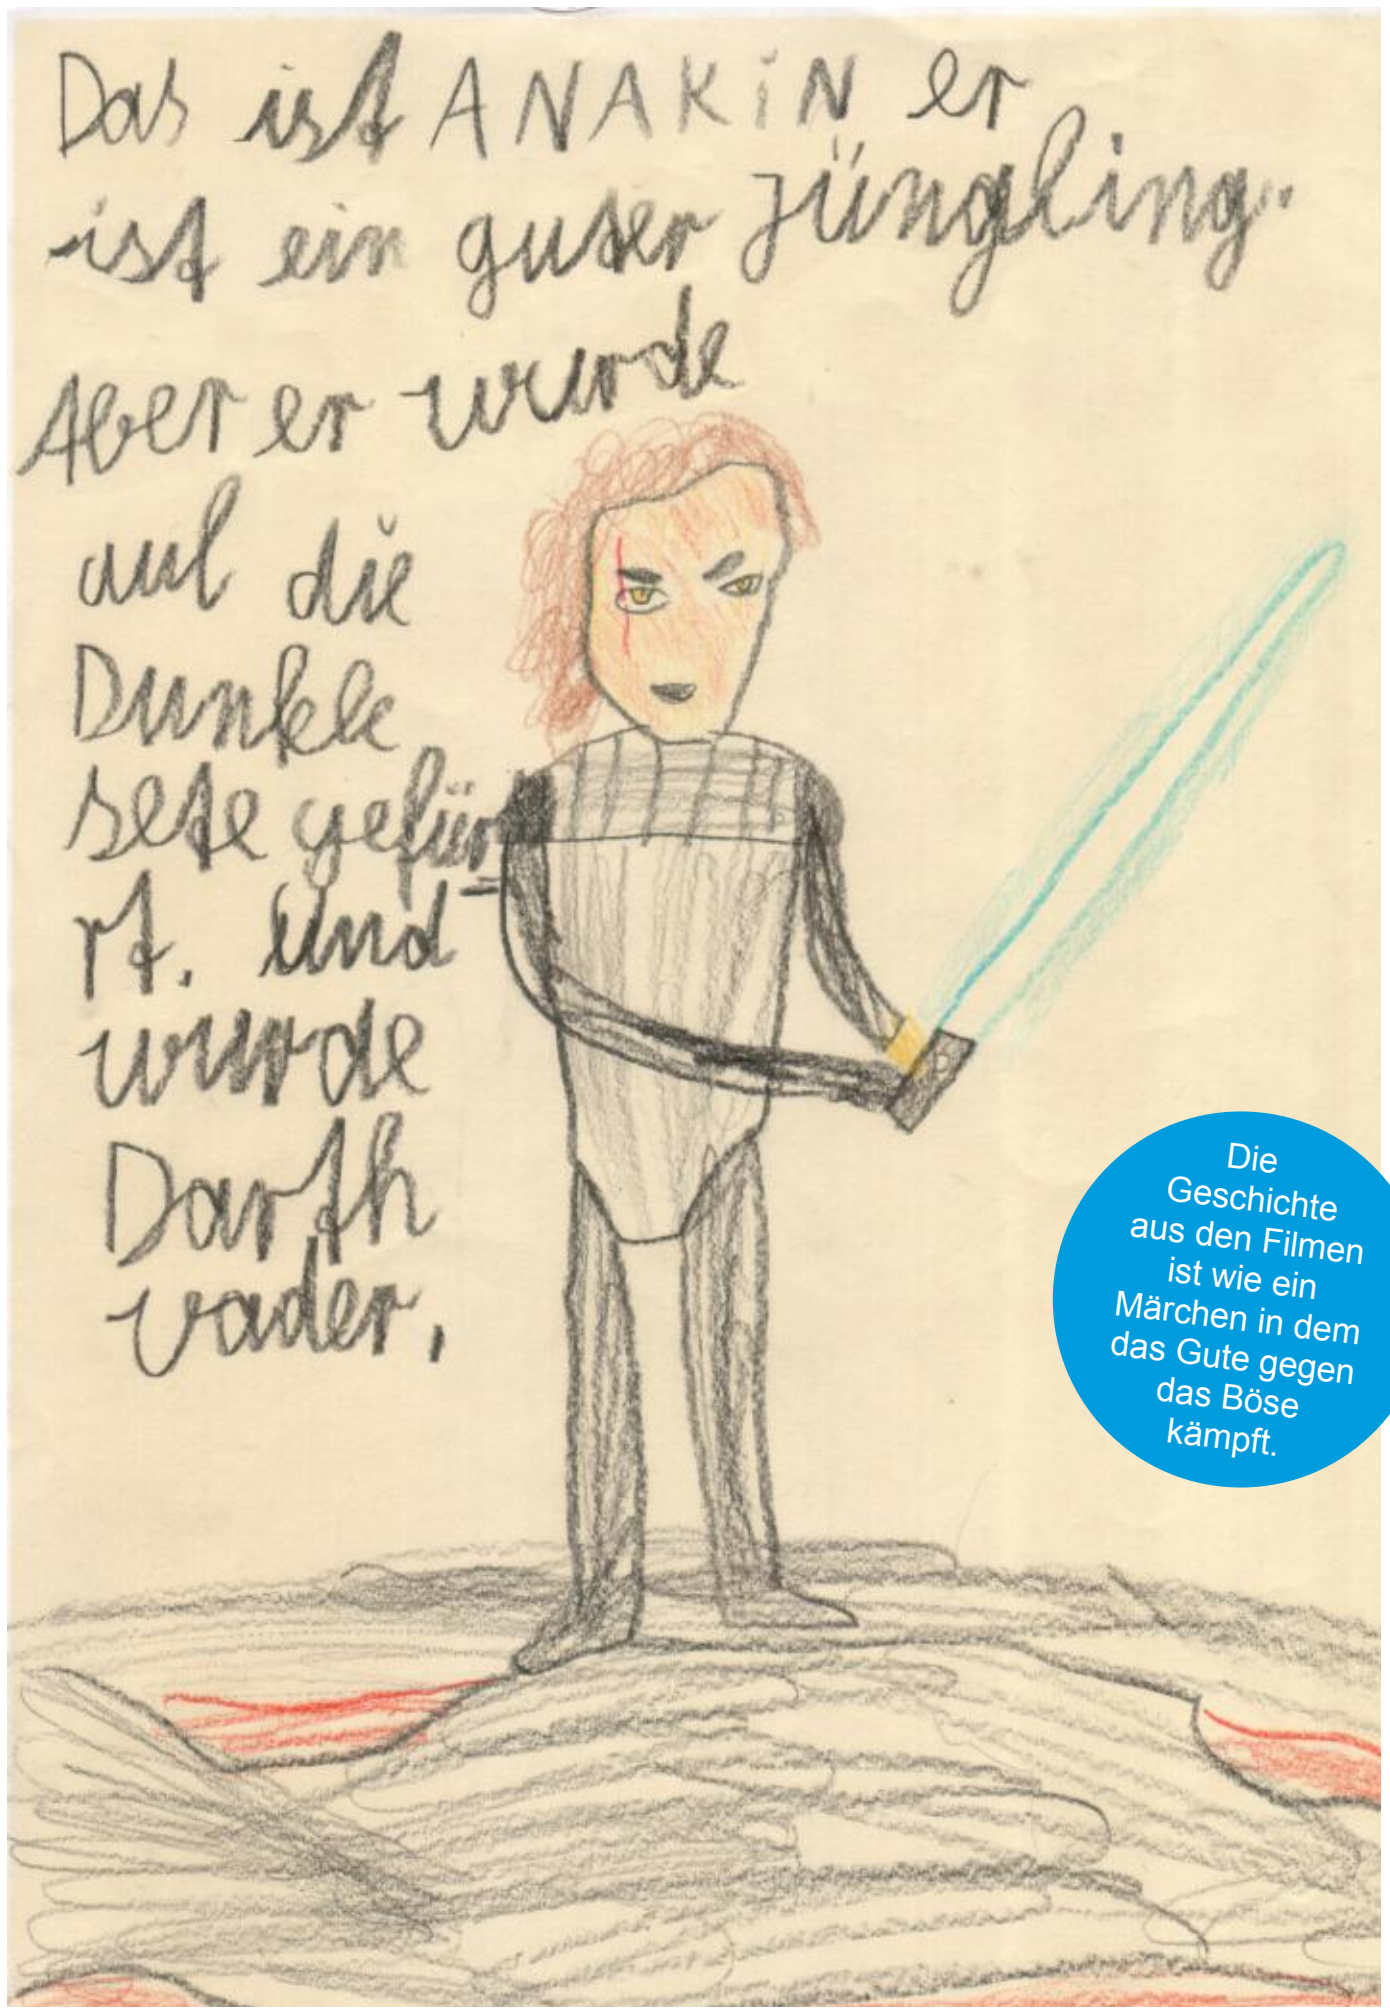 Das ist ANAKiN er
ist ein guter Jüngling.
Aber er wurde
auf die
Dunkle
sete gefür
rt. Und
wurde
Darth
vader.
Die
Geschichte
aus den Filmen
ist wie ein
Märchen in dem
das Gute gegen
das Böse
kämpft.